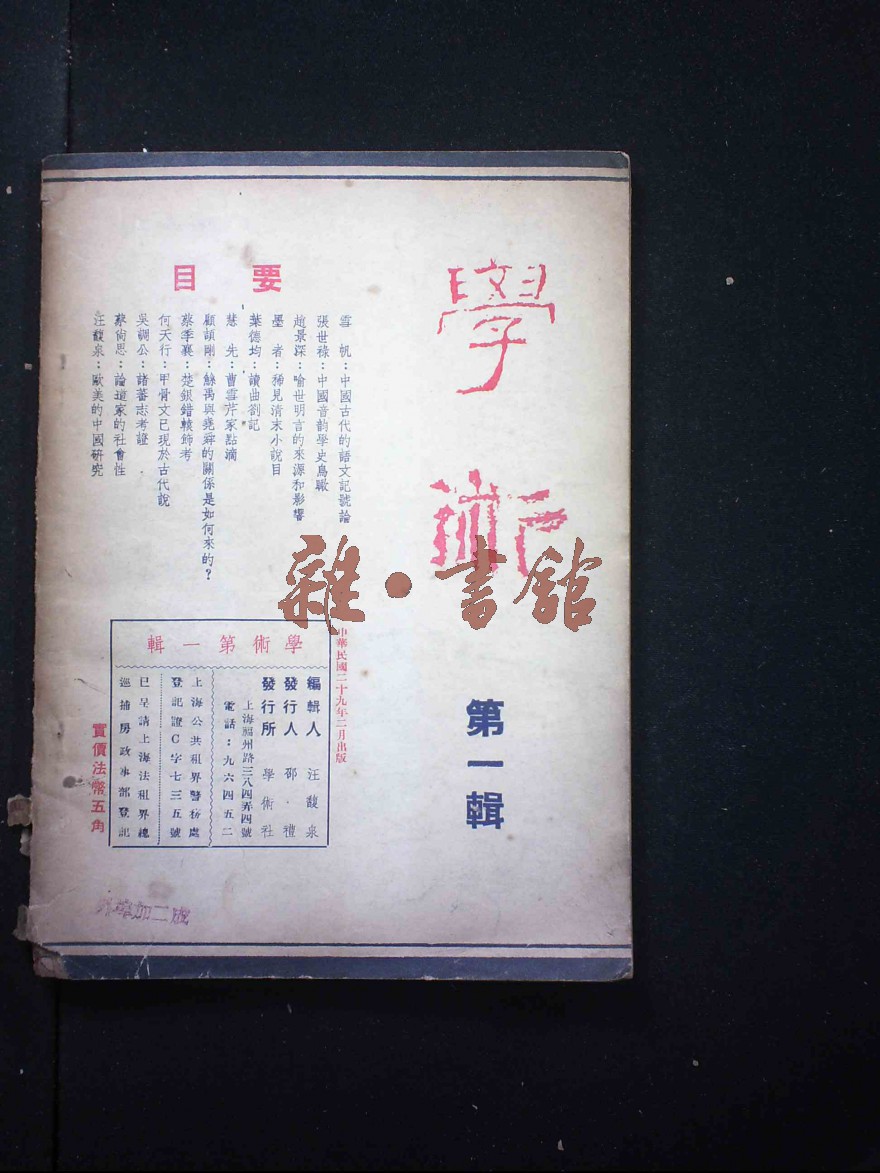 學術
第一輯
要目
雪帆：中國古代的語文記號論
張世祿：中國音韵學史鳥瞰
趙景深：喻世明言的來源和影響
墨者：稀見清末小說目
葉德均：讀曲劄記
慧先：曹雪芹家點滴
顧頡剛：鯀禹與堯舜的關係是如何來的？
蔡季襄：楚銀錯轅飾考
何天行：甲骨文已現於古代說
吳調公：諸蕃志考證
蔡尙思：論道家的社會性
汪馥泉：歐美的中國研究
中華民國二十九年二月出版
學術第一輯
編輯人 汪馥泉
發行人 邵·禮
發行所 學術社
上海福州路三八四弄四號
電話：九六四五二
上海公共租界警務處
登記證C字七三五號
已呈請上海法租界總
巡捕房政事部登記
實價法幣五角
外埠加二成
雜·書館